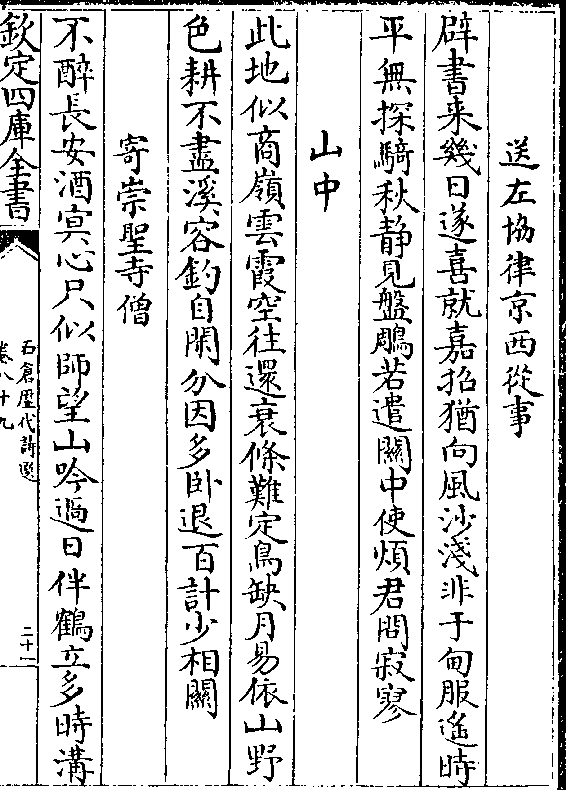 送左協律京西從事
辟書来幾日遂喜就嘉招猶向風沙淺非于甸服遙時
平無探騎秋静見盤鵰若遣關中使煩君問寂寥
山中
此地似商嶺雲霞空往還衰條難定鳥缺月易依山野
色耕不盡溪容釣自閑分因多卧退百計少相關
寄崇聖寺僧
不醉長安酒㝠心只似師望山吟過日伴鶴立多時溝
欽定四庫全書
石倉歷代詩選
卷八十九
二十一